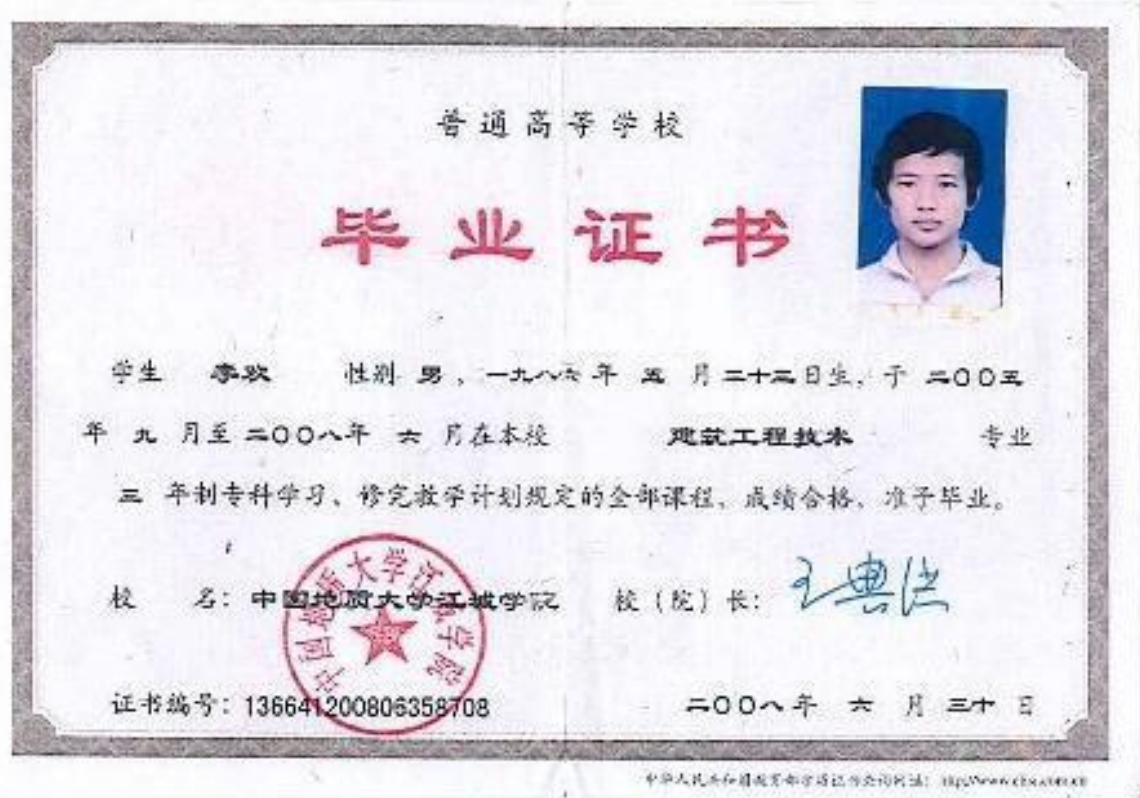 普通高等学校
毕业证书
学生 李欢 性别 男，一九八六年 五 月二十三日生，于 二〇〇五
年 九 月至二〇〇八年 六 月在本校 建筑工程技术 专业
三 年制专科学习、修完教学计划规定的全部课程，成绩合格，准予毕业。
校 名：中国地质大学江城学院 校（院）长：王典洪
中国地质大学江城学院
证书编号：136641200806358708 二〇〇八年 六 月 三十 日
中华人民共和国教育部学历证书查询网址：http://www.chsi.com.cn